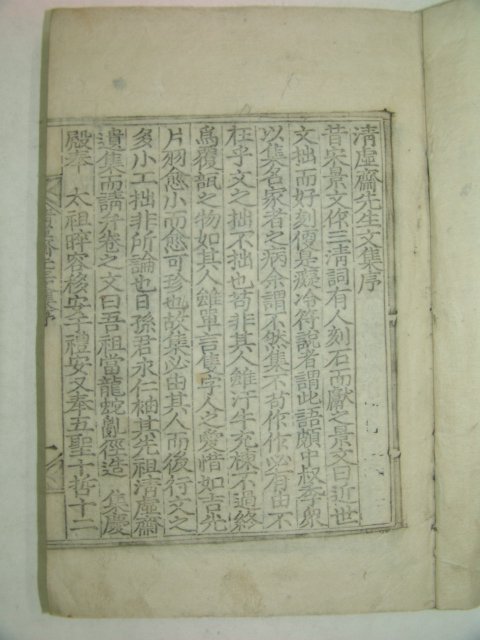 清虛齋先生文集序
昔宋景文作三淸詞有人刻石而獻之景文曰近世
文拙而好刻便是癡冷符說者謂此語頗中叔季
以集名家者之病余謂不然集不苟作作必有由不
在乎文之拙不拙也苟非其人雖汗牛充棟不過終
爲覆瓿之物如其人雖單言隻字人之愛惜如吉光
片羽愈小而愈可珍也故集必由其人而後行文之
多小工拙非所論也日孫君永仁袖其先祖清虛齋
遺集而請弁卷之文曰吾祖當龍蛇劻徑造 集慶
殿奉 太祖睟容移安于禮安又奉五聖十哲十二